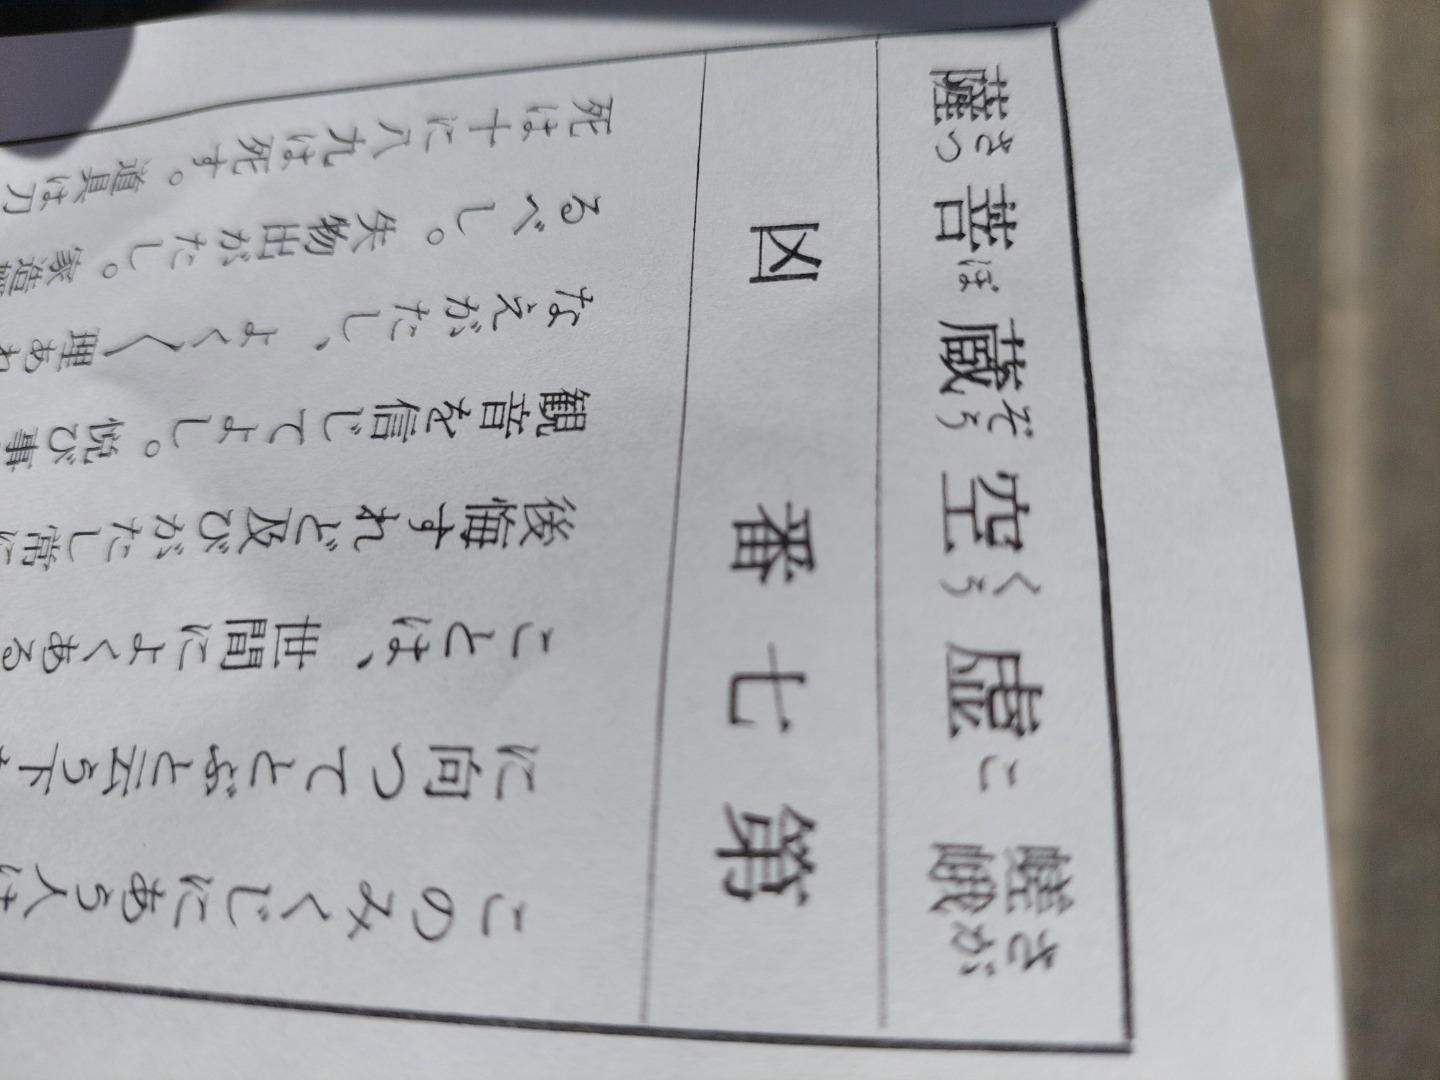 嵯峨虚空蔵菩薩
さが こくうぞうぼさつ
第七番 凶
このみくじにあう人は
に向ってとぶと云う下
ことは、世間によくある
後悔すれど及びがたし常に
観音を信じてよし。悦び事
なえがたし、よく〱埋あわ
るべし。失物出がたし。家造
死は十に八九は死す。道具は刀